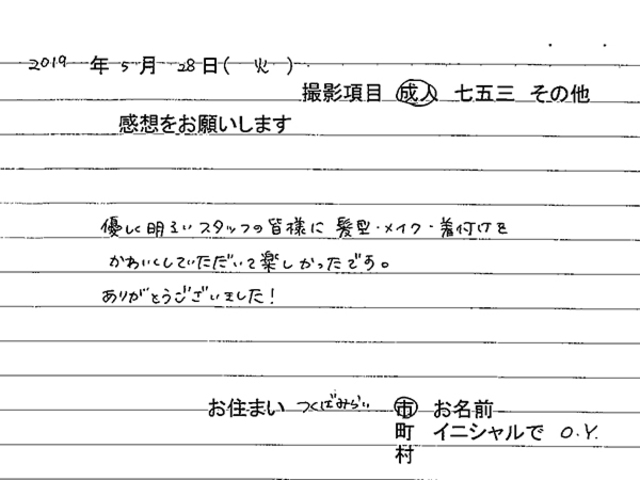 2019 年 5 月 28日( 火 )
撮影項目 成人 七五三 その他
感想をお願いします
優しく明るいスタッフの皆様に 髪型・メイク・着付けを
かわいくしていただいて楽しかったです。
ありがとうございました!
お住まい つくばみらい 市 お名前
町 イニシャルで O.Y.
村